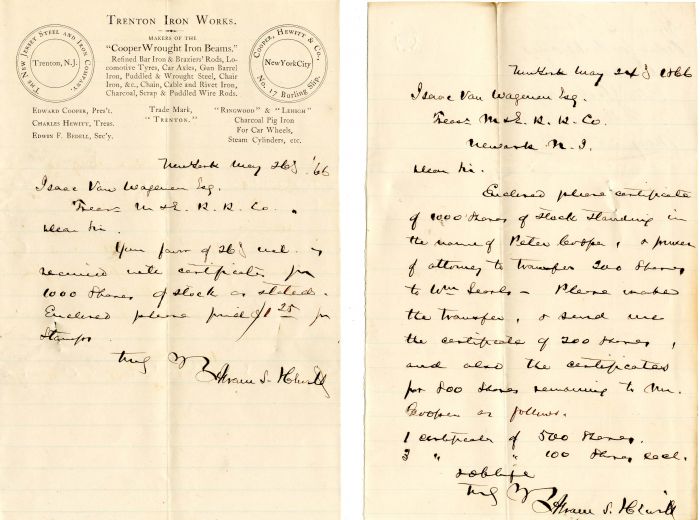 TRENTON IRON WORKS.
MAKERS OF THE
"Cooper Wrought Iron Beams."
Refined Bar Iron & Braziers' Rods, Lo-
comotive Tyres, Car Axles, Gun Barrel
Iron, Puddled & Wrought Steel, Chair
Iron, &c., Chain, Cable and Rivet Iron,
Charcoal, Scrap & Puddled Wire Rods.
THE NEW JERSEY STEEL AND IRON COMPANY.
Trenton, N.J.
COOPER, HEWITT & Co.
New York City
No. 17 Burling Slip.
EDWARD COOPER, Pres't.
CHARLES HEWITT, Treas.
EDWIN F. BEDELL, Sec'y.
Trade Mark,
"TRENTON."
"RINGWOOD" & "LEHIGH"
Charcoal Pig Iron
For Car Wheels,
Steam Cylinders, etc.
New York May 26 '66
Isaac Van Wagenen Esq.
Treas. M & E. R. R. Co.
Dear Sir.
Your favor of 26 is
received with certificates for
1000 Shares of Stock as stated.
Enclosed please find $1 25 for
Stamps.
Truly
Abram S. Hewitt
New York May 24 1866
Isaac Van Wagenen Esq.
Treas M & E. R. R. Co.
Newark N. J.
Dear Sir.
Enclosed please certificate
of 1000 Shares of Stock standing in
the name of Peter Cooper, & power
of attorney to transfer 200 Shares
to Wm Searls - Please make
the transfer, & send me
the certificate of 200 Shares,
and also the certificates
for 800 Shares remaining to Mr.
Cooper as follows.
1 certificate of 500 Shares.
3 " " 100 Shares each.
& oblige
Truly
Abram S. Hewitt